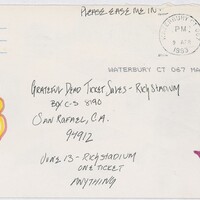 PLEASE, EASE ME IN...
WATERBURY CT
PM
1993
WATERBURY CT 067
GRATEFUL DEAD TICKET SALES - RFK STADIUM
BOX C-S 8190
SAN RAFAEL, CA.
94912
JUNE 13 - RFK STADIUM
ONE TICKET
ANYTHING